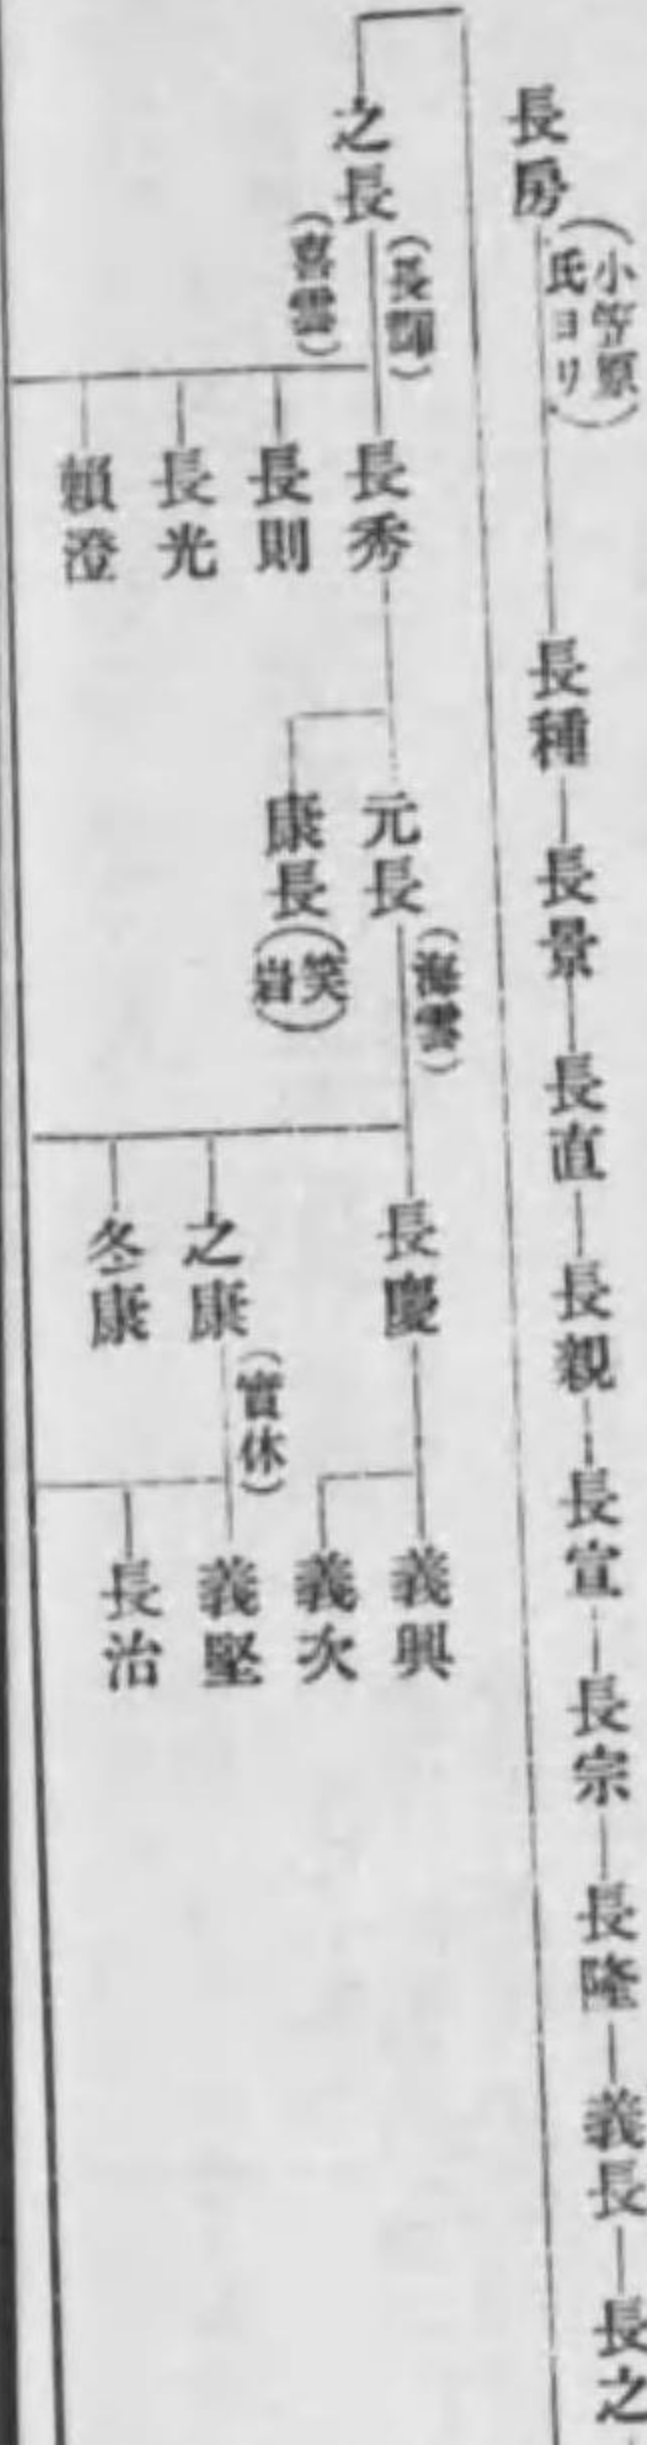 長房(小笠原氏ヨリ)―長種―長景―長直―長親―長宣―長宗―長隆―義長―長之
之長(長輝)(喜雲)
長秀
長則
長光
賴澄
元長(海雲)
康長(笑岩)
長慶
之康(實休)
冬康
義興
義次
義堅
長治